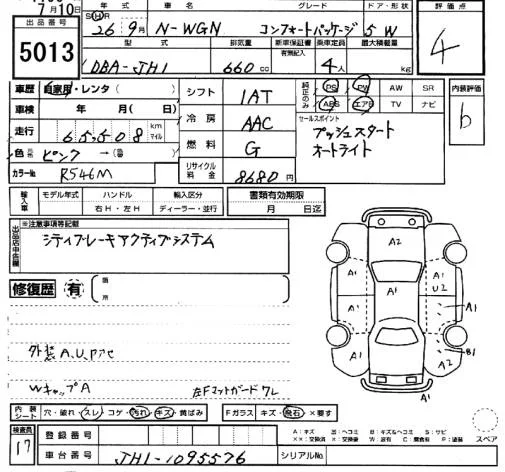 7月10日
出品番号
5013
年式 グレード ドア・形状 評価点
26年9月 N-WGN コンフォートパッケージ 5 W
4
型式 排気量 新車保証書 乗車定員 最大積載量
有無記入
DBA-JH1 660cc 4人 kg
車歴 自家用・レンタ( )
シフト 1AT
純正のみ PS PW AW SR
ABS エアB TV ナビ
内装評価
b
車検 年 月( 日)
走行 65,508 km マイル
冷房 AAC
セールスポイント
プッシュスタート
オートライト
色 ピンク →( )
燃料 G
カラー№ R546M
リサイクル料金 8680円
輸入車 モデル年式 ハンドル 輸入区分 書類有効期限
右H・左H ディーラー・並行 月 日迄
出品店申告欄 ※注意事項等記載
シティブレーキアクティブシステム
修復歴 有 箇所
外装A,U,
WキャップA
A2
A1
A1
A1
U2
A1
A1
A1
A1
B1
A2
A2
A1
内装シート 穴・破れ・スレ・コゲ・汚れ・キズ・黄ばみ
Fガラス キズ・飛石・×要す
検査員 17
登録番号
A:キズ U:ヘコミ B:キズ&ヘコミ S:サビ
XX:交換済 X:交換要 W:波有 C:腐食有 P:塗装
スペア
車台番号 JH1-1095576 シリアル№